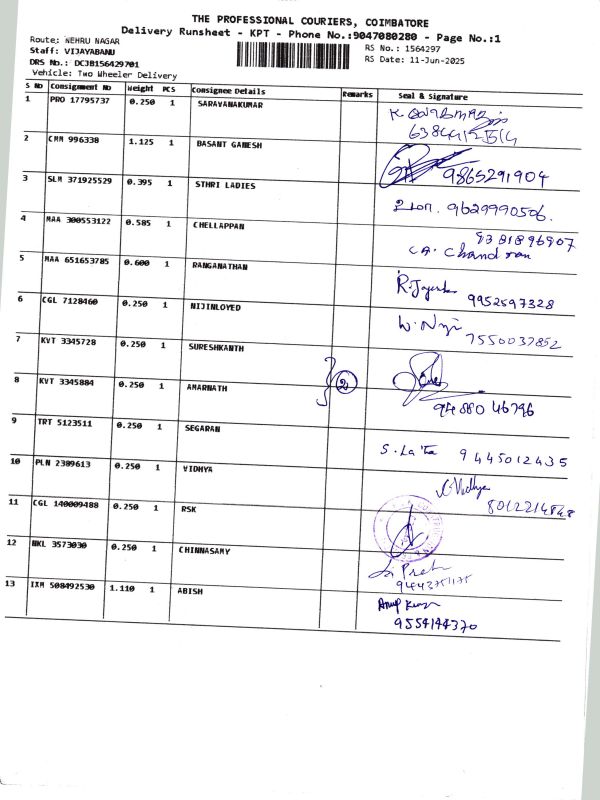 THE PROFESSIONAL COURIERS, COIMBATORE
Delivery Runsheet - KPT - Phone No.:9047080280 - Page No.:1
Route: NEHRU NAGAR
RS No.: 1564297
Staff: VIJAYABANU
RS Date: 11-Jun-2025
DRS No.: DCJB156429701
Vehicle: Two Wheeler Delivery
S No Consignment No Weight PCS Consignee Details Remarks Seal & Signature
1 PRO 17795737 0.250 1 SARAVANAKUMAR
2 CMM 996338 1.125 1 BASANT GANESH 9865291904
3 SLM 371925529 0.395 1 STHRI LADIES 9629990506.
4 MAA 300553122 0.585 1 CHELLAPPAN 9381896907
Chandran
5 MAA 651653785 0.600 1 RANGANATHAN 9952597328
6 CGL 7128460 0.250 1 NIJINLOYED 7550037852
7 KVT 3345728 0.250 1 SURESHKANTH
8 KVT 3345884 0.250 1 AMARNATH 2 9488046796
9 TRT 5123511 0.250 1 SEGARAN S. Latha 9445012435
10 PLN 2389613 0.250 1 VIDHYA Vidhya
11 CGL 140009488 0.250 1 RSK
12 NKL 3573030 0.250 1 CHINNASAMY
13 IXM 508492530 1.110 1 ABISH
9554144370